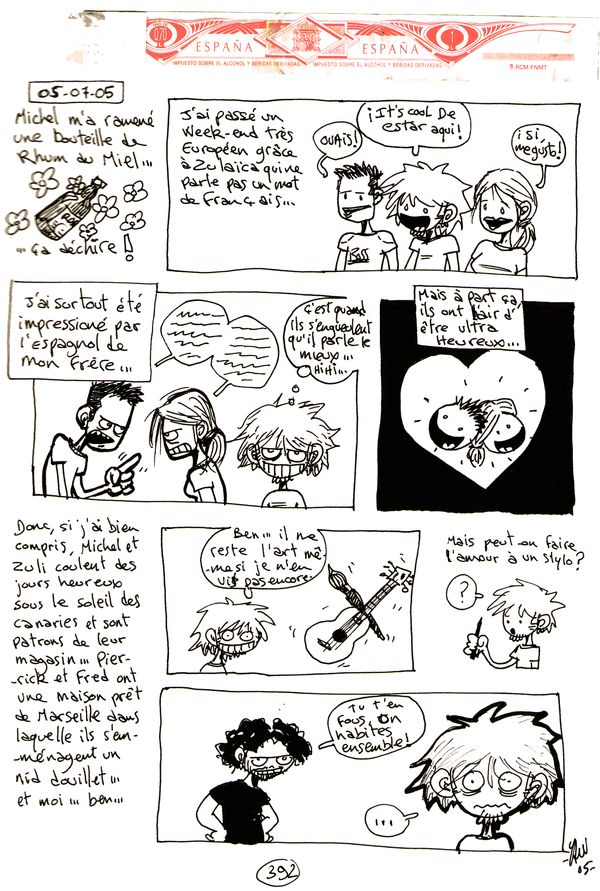 070
ESPAÑA
ESPAÑA
IMPUESTO SOBRE EL ALCOHOL Y BEBIDAS DERIVADAS
IMPUESTO SOBRE EL ALCOHOL Y BEBIDAS DERIVADAS
RCM-FNMT
05-07-05
Michel m'a ramené
une bouteille de
Rhum au Miel...
...ça déchire!
J'ai passé un
Week-end très
Européen grâce
à Zulaïca qui ne
parle pas un mot
de Français...
OUAIS!
¡It's cool De
estar aqui!
¡Si,
megusto!
Boss
J'ai surtout été
impressioné par
l'espagnol de
mon frère...
C'est quand
ils s'engueulent
qu'il parle le
mieux...
Hihi...
Mais à part ça,
ils ont l'air d'
être ultra
Heureux...
Donc, si j'ai bien
compris, Michel et
Zuli coulent des
jours heureux
sous le soleil des
canaries et sont
patrons de leur
magasin... Pier-
rick et Fred ont
une maison prêt
de Marseille dans
laquelle ils s'en-
-ménagent un
nid douillet...
et moi... ben...
Ben... il me
reste l'art mê-
me si je n'en
vit pas encore.
Mais peut-on faire
l'amour à un stylo?
?
Tu t'en
fous, on
habites
ensemble!
...
05-
392